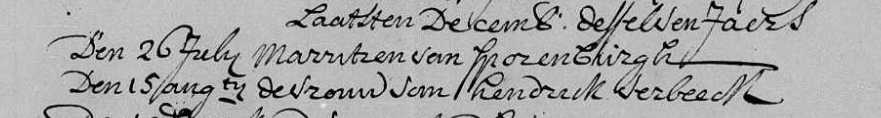 Laatsten Decemb: desselven Jaers
Den 26 July Marritzen van Sporenburgh
Den 15 augty de vrouw van Hendrick Verbeeck